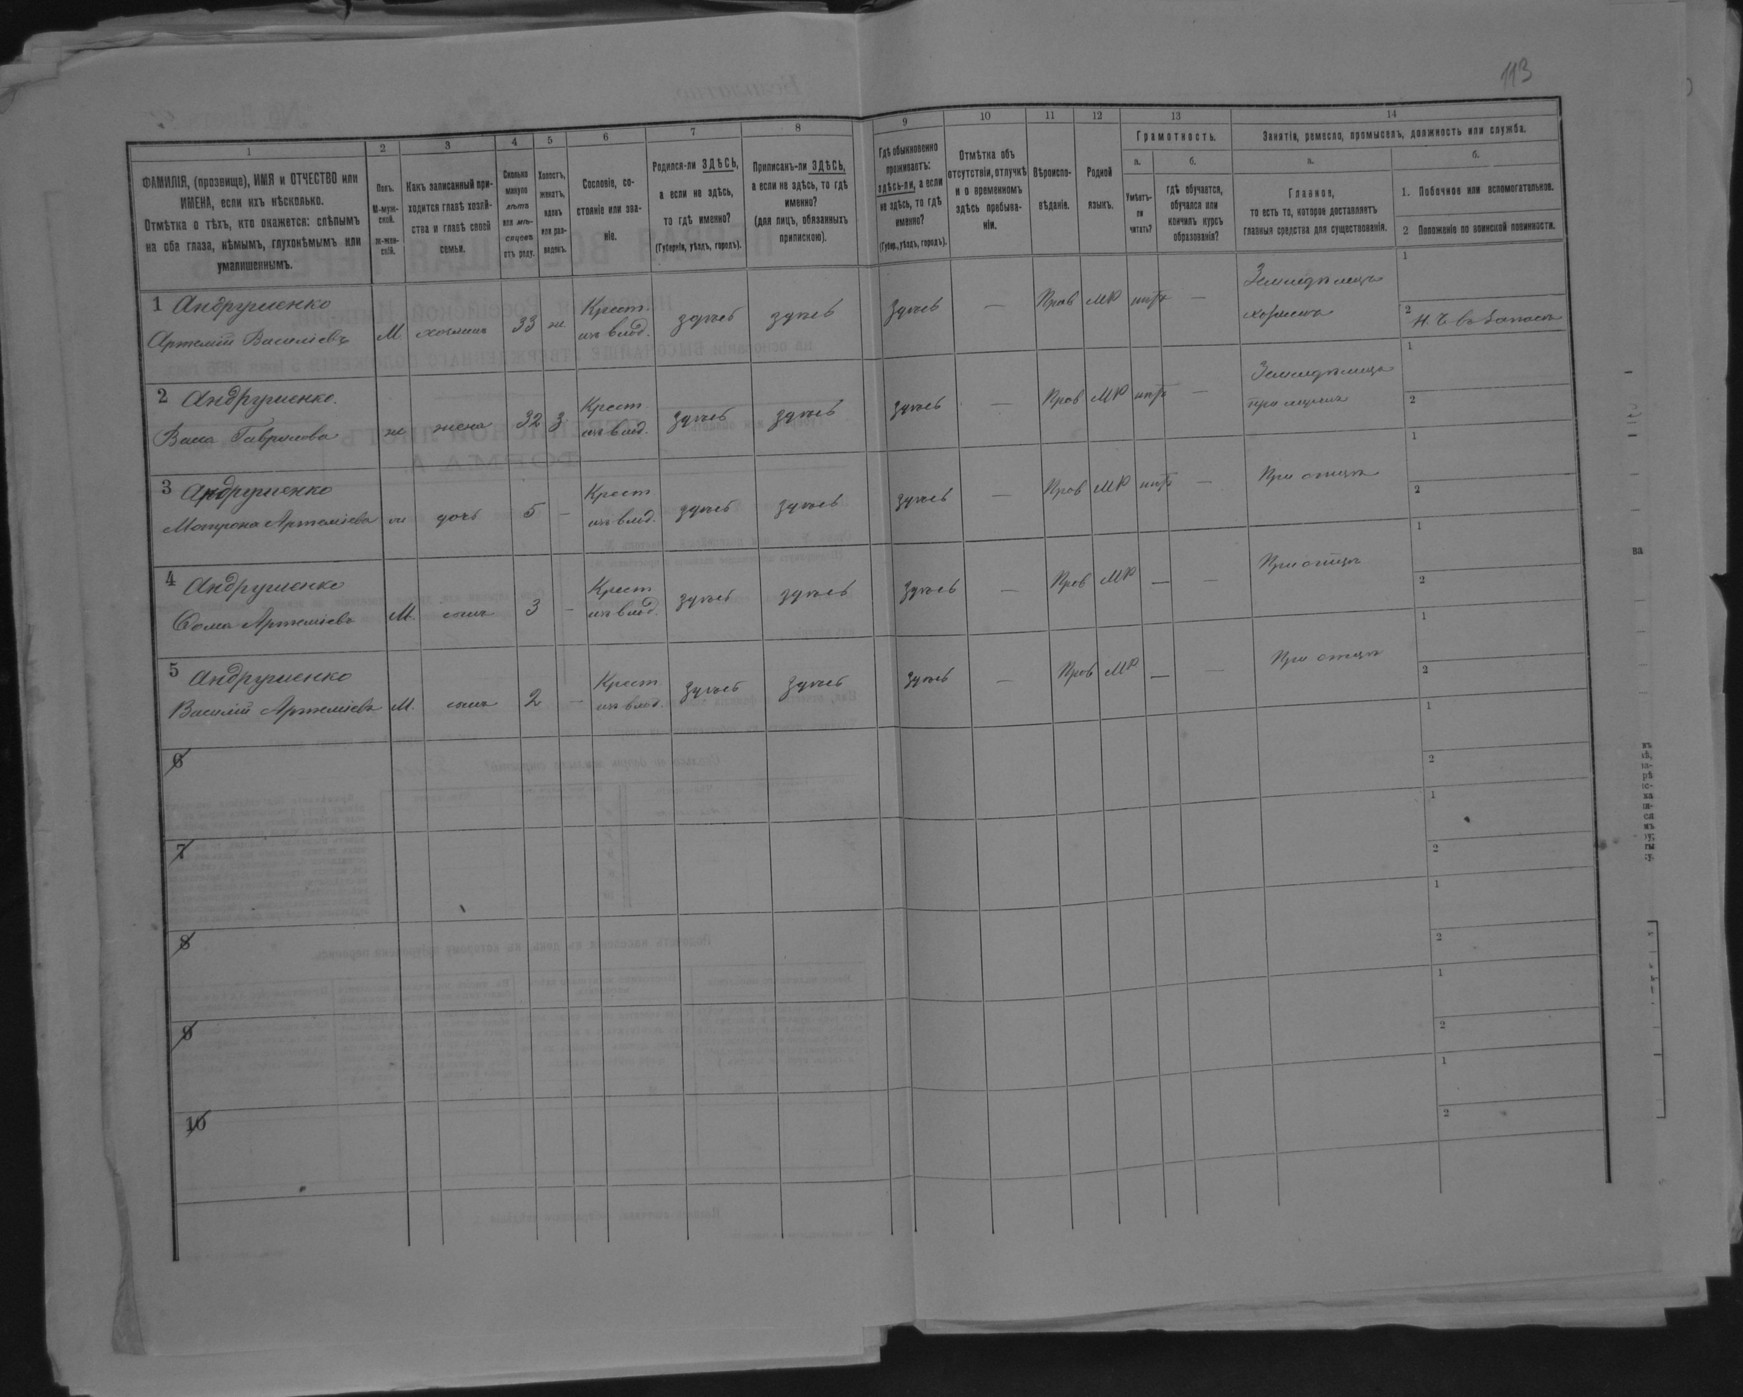 113
1 2 3 4 5 6 7 8 9 10 11 12 13 14
ФАМИЛІЯ, (прозвище), ИМЯ и ОТЧЕСТВО или
ИМЕНА, если ихъ нѣсколько.
Отмѣтка о тѣхъ, кто окажется: слѣпымъ
на оба глаза, нѣмымъ, глухонѣмымъ или
умалишеннымъ.
Полъ.
М-муж-
ской.
ж-жен-
скій.
Какъ записанный при-
ходится главѣ хозяй-
ства и главѣ своей
семьи.
Сколько
минуло
лѣтъ
или мѣ-
сяцевъ
отъ роду.
Холостъ,
женатъ,
вдовъ
или раз-
веденъ.
Сословіе, со-
стояніе или зва-
ніе.
Родился-ли ЗДѢСЬ,
а если не здѣсь,
то гдѣ именно?
(Губернія, уѣздъ, городъ).
Приписанъ-ли ЗДѢСЬ,
а если не здѣсь, то гдѣ
именно?
(для лицъ, обязанныхъ
припискою).
Гдѣ обыкновенно
проживаетъ:
здѣсь-ли, а если
не здѣсь, то гдѣ
именно?
(Губер., уѣздъ, городъ).
Отмѣтка объ
отсутствіи, отлучкѣ
и о временномъ
здѣсь пребыва-
ніи.
Вѣроиспо-
вѣданіе.
Родной
языкъ.
Грамотность.
а. б.
Умѣетъ-
ли
читать?
гдѣ обучается,
обучался или
кончилъ курсъ
образованія?
Занятія, ремесло, промыселъ, должность или служба.
а. б.
Главное,
то есть то, которое доставляетъ
главныя средства для существованія.
1. Побочное или вспомогательное.
2 Положеніе по воинской повинности.
1 Андрушенко
Артемій Васильевъ М хозяинъ 33 ж Крест. изъ влад. здѣсь здѣсь здѣсь — Прав МР нѣтъ — Земледѣлецъ хозяинъ
1
2
2 Андрушенко.
Гаврилова ж жена 32 з Крест. изъ влад. здѣсь здѣсь здѣсь — Прав МР нѣтъ — Земледѣлица при мужѣ
1
2
3 Андрушенко
Мотрона Артеміева ж дочь 5 — Крест изъ влад. здѣсь здѣсь здѣсь — Прав МР нѣтъ — При отцѣ
1
2
4 Андрушенко
Артеміевъ М. сынъ 3 — Крест изъ влад. здѣсь здѣсь здѣсь — Прав МР — — При отцѣ
1
2
5 Андрушенко
Василій Артеміевъ М. сынъ 2 — Крест изъ влад. здѣсь здѣсь здѣсь — Прав МР — — При отцѣ
1
2
6
1
2
7
1
2
8
1
2
9
1
2
10
1
2